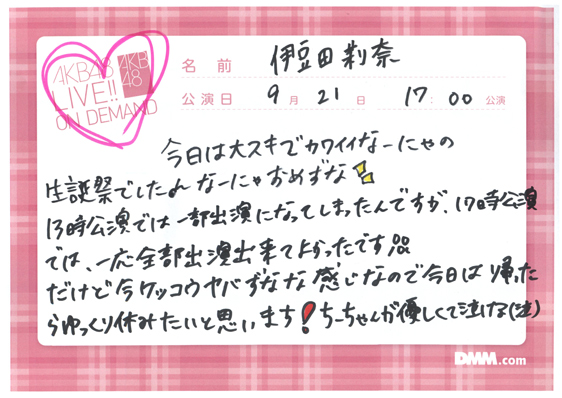 AKB48
LIVE!!
ON DEMAND
AKB
48
名前 伊豆田莉奈
公演日 9月21日 17:00公演
今日は大スキでカワイイなーにゃの
生誕祭でしたよん なーにゃおめずな
13時公演では一部出演になってしまったんですが、17時公演
では、一応全部出演出来てよかったです
だけど今ケッコウヤバずなな感じなので今日は帰った
らゆっくり休みたいと思いまち❗ちーちゃんが優しくて泣ける(泣)
DMM.com